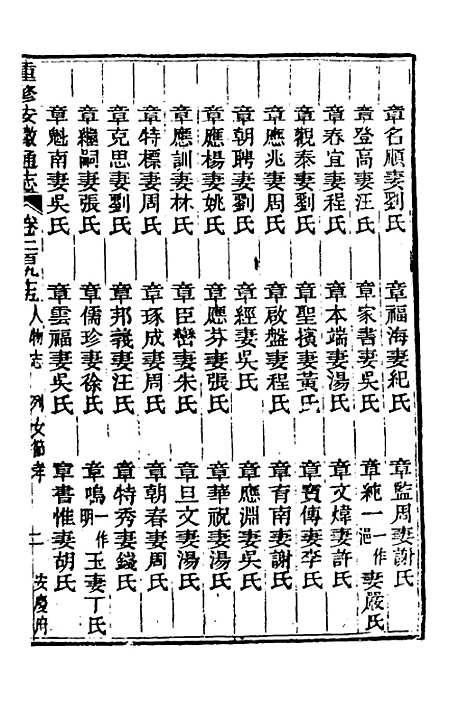 章名順妻劉氏　章福海妻紀氏　章監周妻謝氏
章登高妻汪氏　章家書妻吳氏　章純一一作妻嚴氏
章春宜妻程氏　章本端妻湯氏　章文煒妻許氏
章觀泰妻劉氏　章聖擯妻黃氏　章寶傳妻李氏
章應兆妻周氏　章啟盤妻程氏　章育南妻謝氏
章朝聘妻劉氏　章經妻吳氏　章應淵妻吳氏
章應楊妻姚氏　章應芬妻張氏　章華祝妻湯氏
章應訓妻林氏　章臣巒妻朱氏　章旦文妻湯氏
章特標妻周氏　章琢成妻周氏　章朝春妻周氏
章克思妻劉氏　章邦義妻汪氏　章特秀妻錢氏
章繼嗣妻張氏　章儒珍妻徐氏　章鳴一作明玉妻丁氏
章魁南妻吳氏　章雲福妻吳氏　章書惟妻胡氏
重修安徽通志　卷二百九十五　人物志　列女節孝　二　安慶府